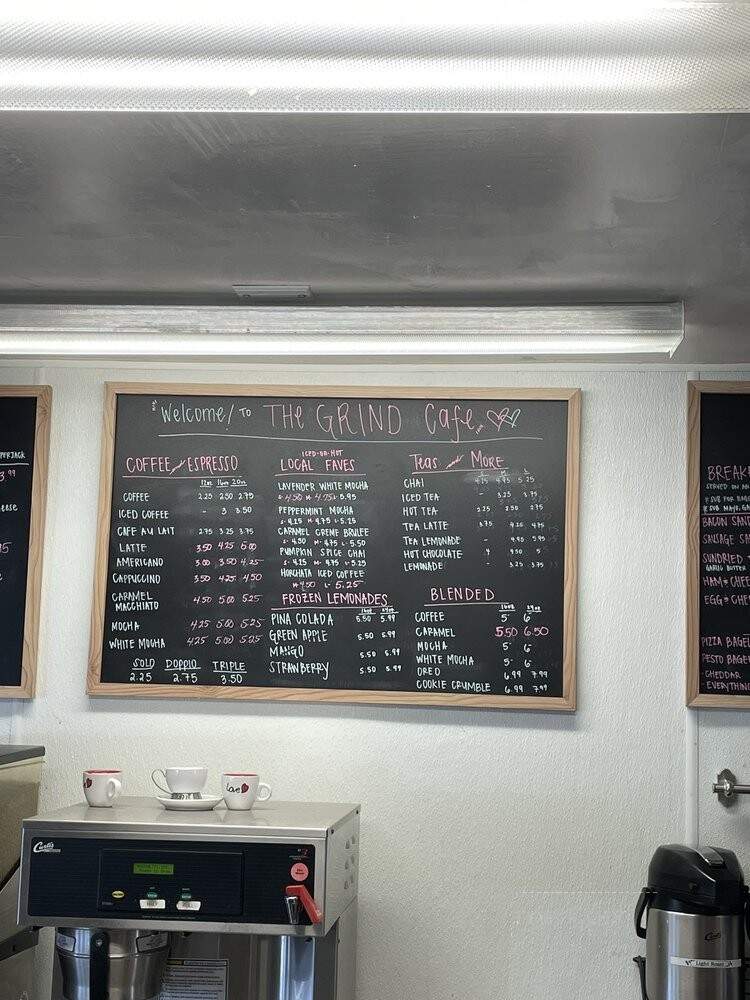 Welcome! To THE GRIND Cafe
COFFEE and ESPRESSO
12oz 16oz 20oz
COFFEE 2.25 2.50 2.75
ICED COFFEE - 3 3.50
CAFE AU LAIT 2.75 3.25 3.75
LATTE 3.50 4.25 5.00
AMERICANO 3.00 3.50 4.25
CAPPUCCINO 3.50 4.25 4.50
CARAMEL
MACCHIATO 4.50 5.00 5.25
MOCHA 4.25 5.00 5.25
WHITE MOCHA 4.25 5.00 5.25
SOLO DOPPIO TRIPLE
2.25 2.75 3.50
ICED-OR-HOT
LOCAL FAVES
LAVENDER WHITE MOCHA
S-4.50 M-4.75 L-5.95
PEPPERMINT MOCHA
S-4.25 M-4.75 L-5.25
CARAMEL CREME BRULEE
S-4.50 M-4.75 L-5.50
PUMPKIN SPICE CHAI
S-4.25 M-4.75 L-5.25
HORCHATA ICED COFFEE
M-4.50 L-5.25
FROZEN LEMONADES
16oz 24oz
PINA COLADA 5.50 5.99
GREEN APPLE 5.50 5.99
MANGO 5.50 5.99
STRAWBERRY 5.50 5.99
Teas and MORE
S M L
CHAI 4.25 4.95 5.25
ICED TEA - 3.25 3.75
HOT TEA 2.25 2.50 2.75
TEA LATTE 3.75 4.25 4.75
TEA LEMONADE - 4.95 5.95
HOT CHOCOLATE 4 4.50 5
LEMONADE - 3.25 3.75
BLENDED
16oz 24oz
COFFEE 5 6
CARAMEL 5.50 6.50
MOCHA 5 6
WHITE MOCHA 5 6
OREO 6.99 7.99
COOKIE CRUMBLE 6.99 7.99
PERJACK
3.99
BREAKF
SERVED ON AN
BACON SAND
SAUSAGE SA
SUNDRIED
GARLIC BUTTER
HAM & CHEE
EGG & CHEE
PIZZA BAGEL
PESTO BAGEL
- CHEDDAR
- EVERYTHIN
Curtis
Love
Curtis
Light Roast